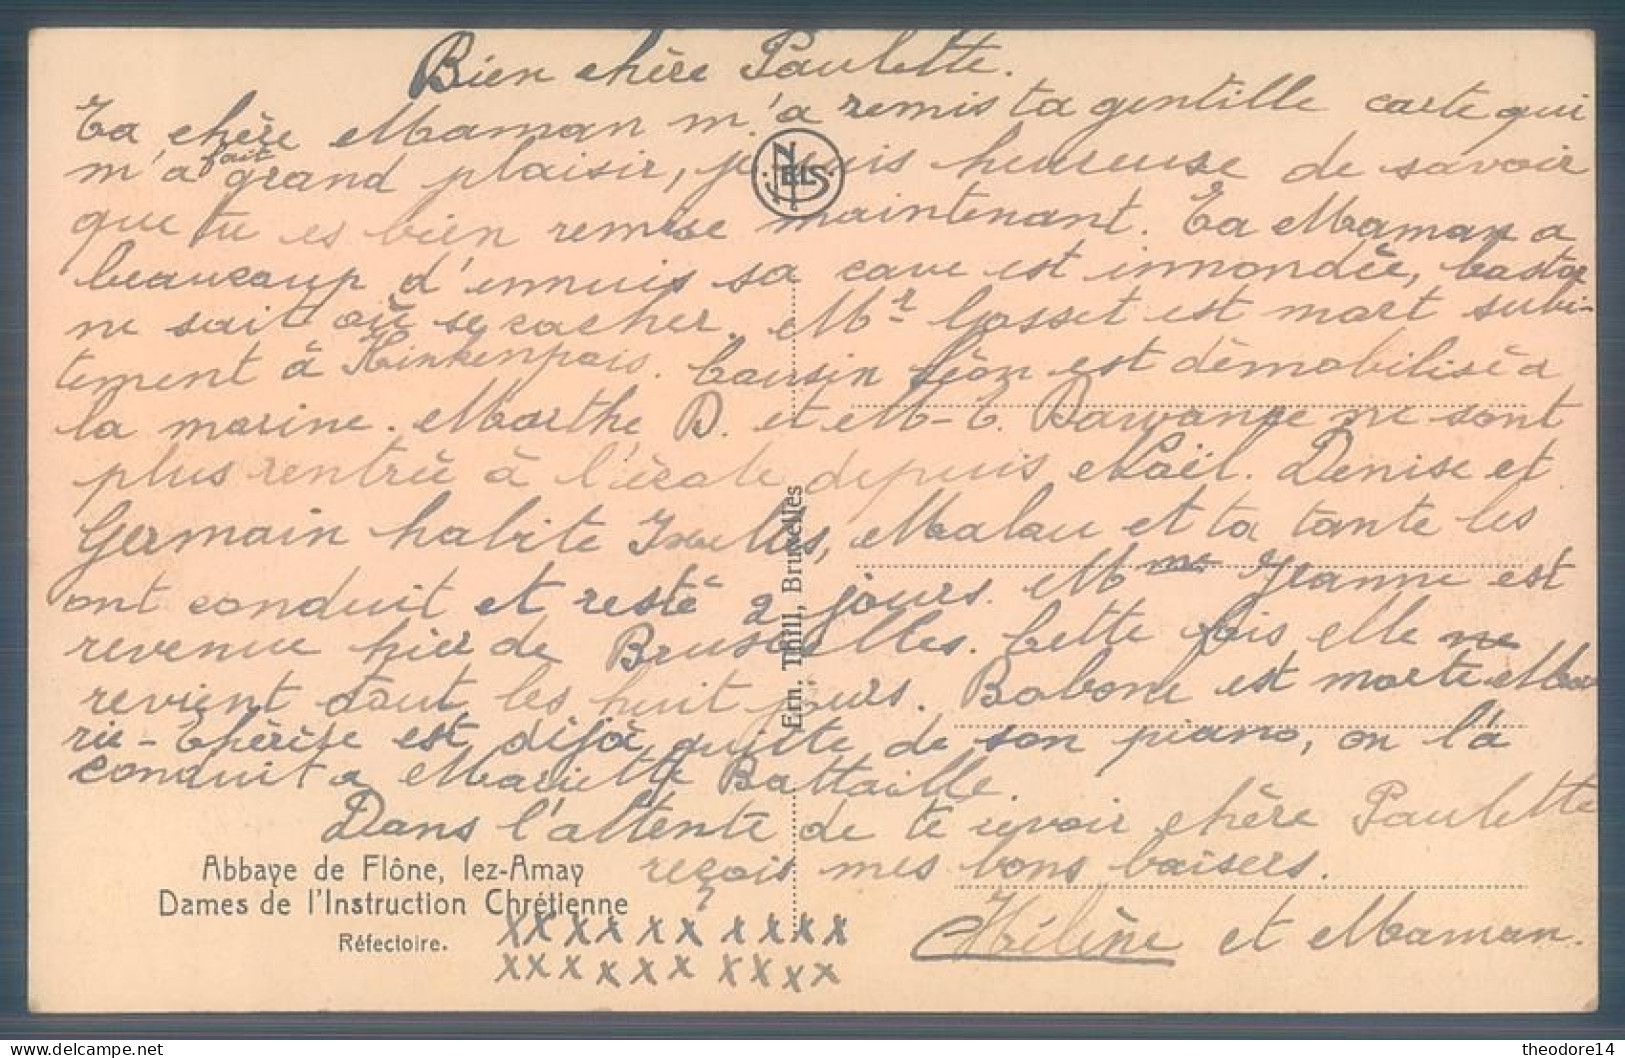 Bien chère Paulette.
Ta chère Maman m'a remis ta gentille carte qui
m'a fait grand plaisir, je suis heureuse de savoir
que tu es bien remise maintenant. Ta Maman a
beaucoup d'ennuis sa cave est innondée, Castor
ne sait où se cacher. Mr Gosset est mort subi-
tement à Kinkempois. Cousin Léon est démobilisé a
la marine. Marthe D. et M-T. Dawance ne sont
plus rentrée à l'école depuis Noël. Denise et
Germain habite Ixelles, Malou et ta tante les
ont conduit et resté 2 jours. Mme Jeanne est
revenue hier de Bruxelles. Cette fois elle ne
revient tout les huit jours. Bobone est morte Ma
rie-Thérèse est déjà quitte de son piano, on l'a
conduit a Mariette Battaille.
Dans l'attente de te revoir chère Paulette
reçois mes bons baisers.
Hélène et Maman.
xxxx xx xxxx
xxx xxx xxxx
NELS
Ern. Thill, Bruxelles
Abbaye de Flône, lez-Amay
Dames de l'Instruction Chrétienne
Réfectoire.
theodore14